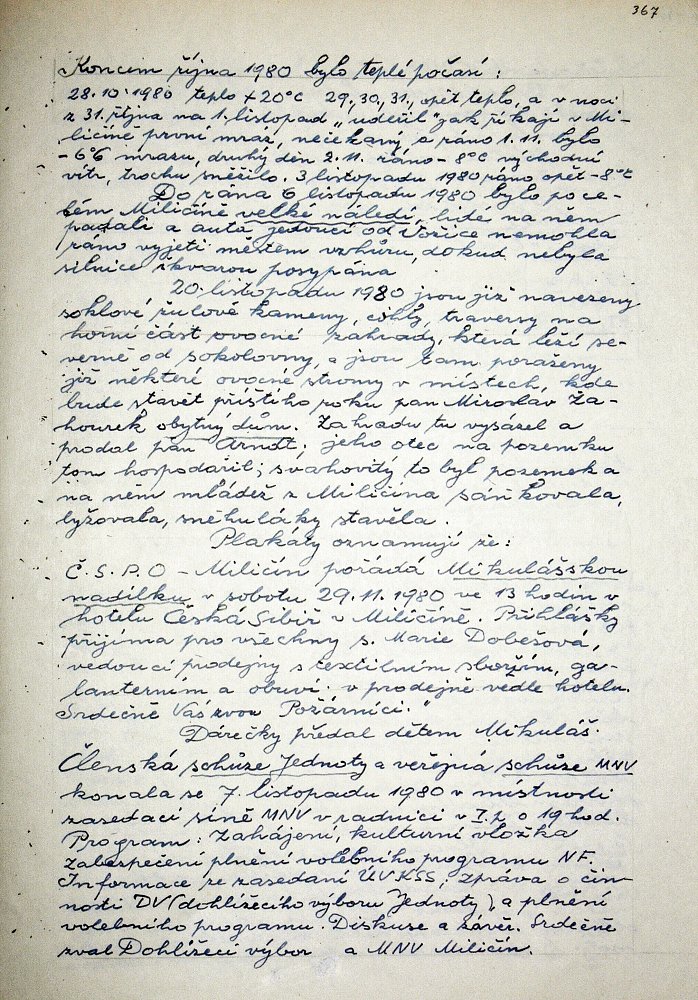 367
Koncem října 1980 bylo teplé počasí:
28.10.1980 teplo +20°C 29., 30., 31., opět teplo, a v noci
z 31. října na 1. listopad „udeřil" jak říkají v Mi-
ličíně první mráz, nečekaný, a ráno 1.11. bylo
-6°C mrazu, druhý den 2.11. ráno -8°C východní
vítr, trochu sněžilo. 3 listopadu 1980 ráno opět -8°C
Do rána 6 listopadu 1980 bylo po ce-
lém Miličíně velké náledí, lidé na něm
padali a auta jedoucí od Votice nemohla
ráno vyjeti městem vzhůru, dokud nebyla
silnice škvarou posypána
20. listopadu 1980 jsou již navezeny
soklové žulové kameny, cihly, traversy na
horní část ovocné zahrady, která leží se-
verně od sokolovny, a jsou tam poraženy
již některé ovocné stromy v místech, kde
bude stavět příštího roku pan Miroslav Za-
hourek obytný dům. Zahradu tu vysázel a
prodal pan Arndt; jeho otec na pozemku
tom hospodařil; svahovitý to byl pozemek a
na něm mládež z Miličína sáňkovala,
lyžovala, sněhuláky stavěla.
Plakáty oznamují že:
Č.S.P.O - Miličín pořádá Mikulášskou
nadílku v sobotu 29.11.1980 ve 13 hodin v
hotelu Česká Sibiř v Miličíně. Přihlášky
přijímá pro všechny s. Marie Dobešová,
vedoucí prodejny s textilním zbožím, ga-
lanterním a obuví v prodejně vedle hotelu.
Srdečně Vás zvou Požárníci."
Dárečky předal dětem Mikuláš.
Členská schůze Jednoty a veřejná schůze MNV
konala se 7. listopadu 1980 v místnosti
zasedací síně MNV v radnici v I.p. o 19 hod.
Program: Zahájení, kulturní vložka
Zabezpečení plnění volebního programu NF.
Informace ze zasedání ÚV KSS; zpráva o čin-
nosti DV (dohlížecího výboru Jednoty), a plnění
volebního programu. Diskuse a závěr. Srdečně
zval Dohlížecí výbor a MNV Miličín.